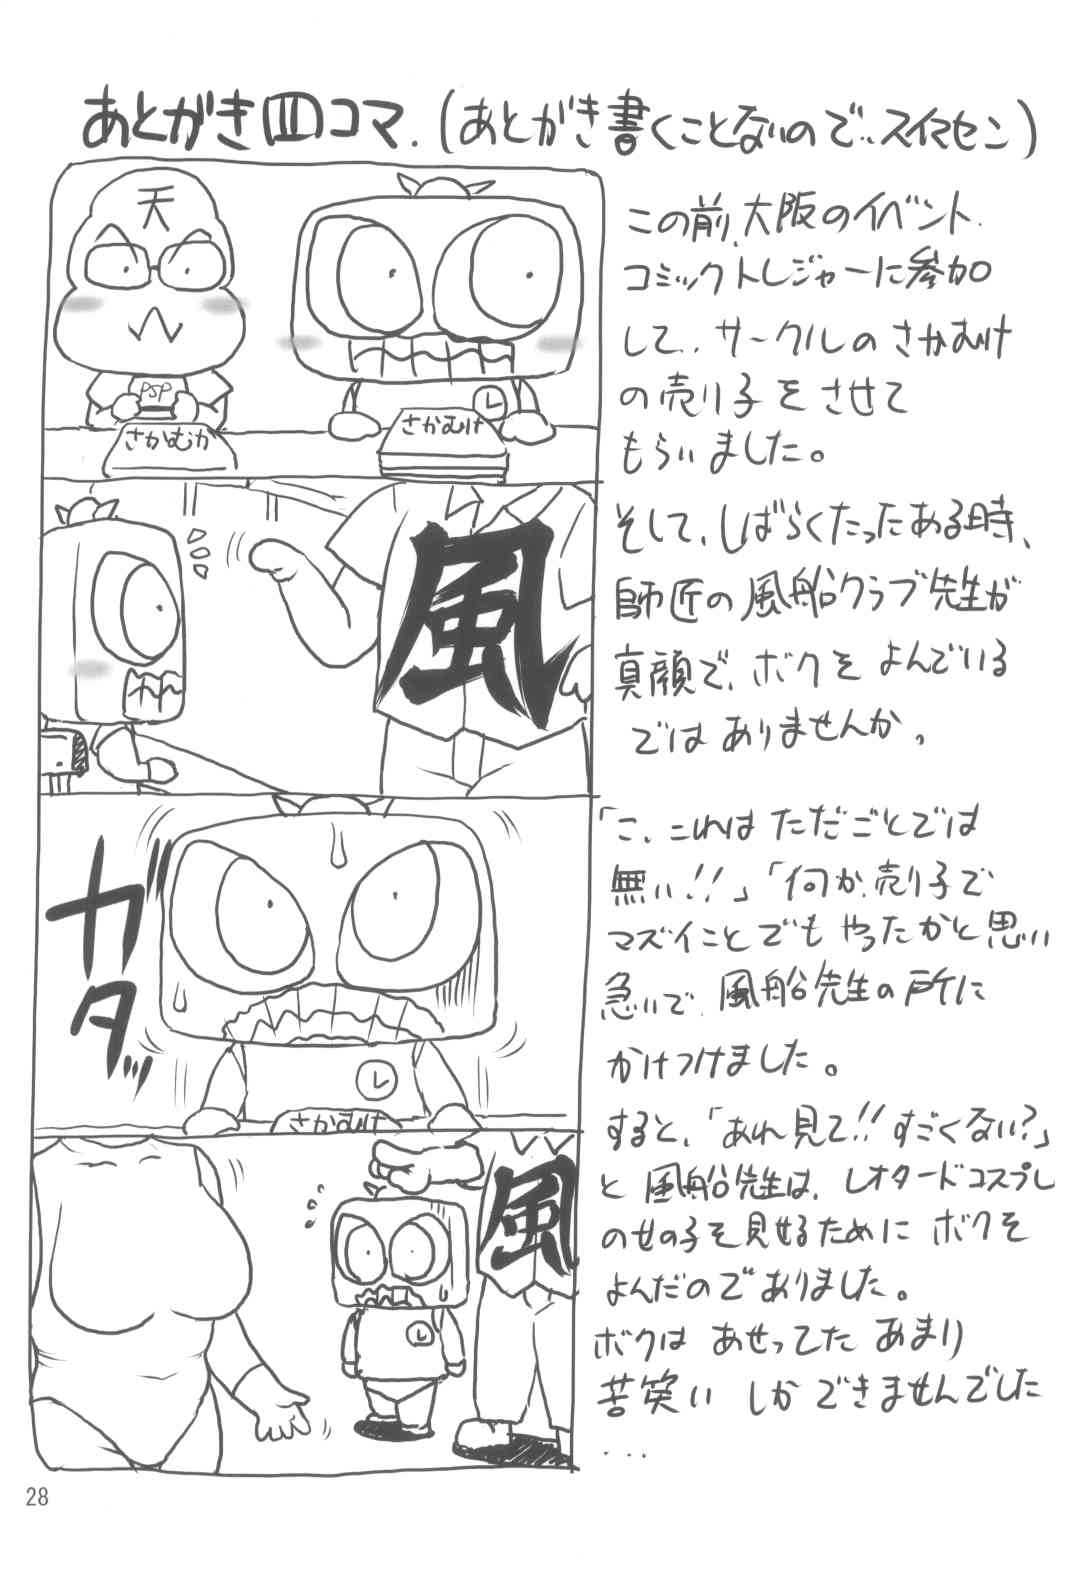 あとがき皿コマ.(あとがき書くことないので‥スイマセン)
天
PSP
さかむけ
さかむけ
この前、大阪のイベント.
コミックトレジャーに参加
して‥サークルのさかむけ
の売り子をさせて
もらいました。
風
そして、しばらくたったある時、
師匠の風船クラブ先生が
真顔で、ボクをよんでいる
ではありませんか。
ガタッ
さかむけ
「こ、これはただごとでは
無い!!」「何か、売り子で
マズイことでもやったかと思い
急いで風船先生の所に
かけつけました。
風
すると、「あれ見て!!すごくない?」
と風船先生は、レオタードコスプレ
の女の子を見せるためにボクを
よんだのでありました。
ボクはあせってたあまり
苦笑いしかできませんでした
‥‥
28